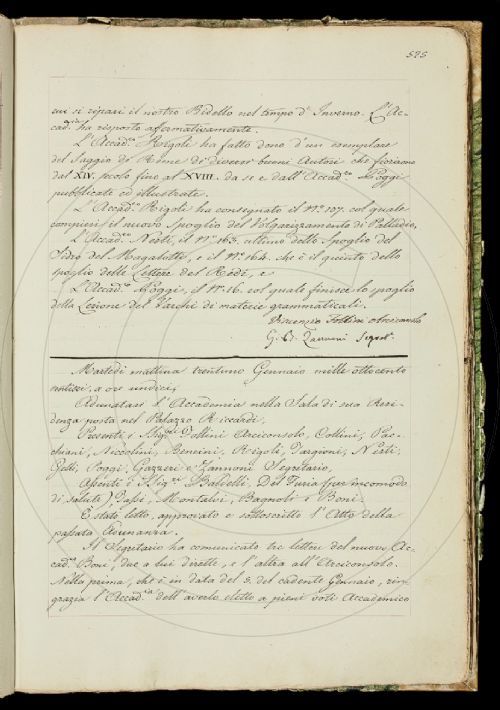 525
cui si ripari il nostro Bidello nel tempo d'Inverno. L'Ac-
cad.ia ha risposto affermativamente.
L'Accad.co Rigoli ha fatto dono d'un esemplare
del Saggio di Rime di diversi buoni Autori che fiorirono
dal XIV. secolo fino al XVIII. da se e dall'Accad.co Poggi
pubblicate ed illustrate.
L'Accad.co Rigoli ha consegnato il N.o 107. col quale
compiesi il nuovo Spoglio del Volgarizzamento di Palladio,
L'Accad.co Nesti, il N.o 163. ultimo dello Spoglio del
Sidro del Magalotti, e il N.o 164. che è il quinto dello
spoglio delle Lettere del Redi, e
L'Accad.co Poggi, il N.o 16. col quale finisce lo spoglio
della Lezione del Varchi di materie grammaticali.
Vincenzio Follini Arciconsolo
G. B. Zannoni Segret.
Martedì mattina trentuno Gennaio mille ottocento
ventisei, a ore undici,
Adunatasi l'Accademia nella Sala di sua Resi-
denza posta nel Palazzo Riccardi,
Presenti i Sigg.ri Follini Arciconsolo, Collini, Pac-
chiani, Niccolini, Bencini, Rigoli, Targioni, Nesti,
Gelli, Poggi, Gazzeri e Zannoni Segretario,
Assenti i Sigg.ri Baldelli, Del Furia (per incomodo
di salute), Tassi, Montalvi, Bagnoli e Boni.
È stato letto, approvato e sottoscritto l'Atto della
passata Adunanza.
Il Segretario ha comunicato tre lettere del nuovo Ac-
cad.co Boni, due a lui dirette, e l'altra all'Arciconsolo.
Nella prima, che è in data del 5. del cadente Gennaio, rin-
grazia l'Accad.ia dell'averlo eletto a pieni voti Accademico